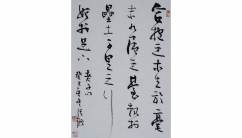 合抱之木生於毫
末九層之臺起於
壘土千里之行
始於足下
老子